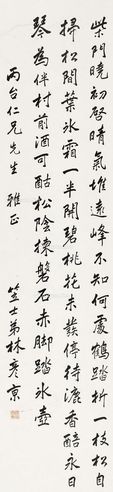 柴門曉初啓晴氣堆遠峰不知何處鶴踏折一枝松自
掃松間葉氷霜一半開碧桃花未發停待漉香醅永日
琴為伴村前酒可酤松陰揉磐石赤脚踏氷壺
丙台仁兄先生 雅正
笠士弟林彥京